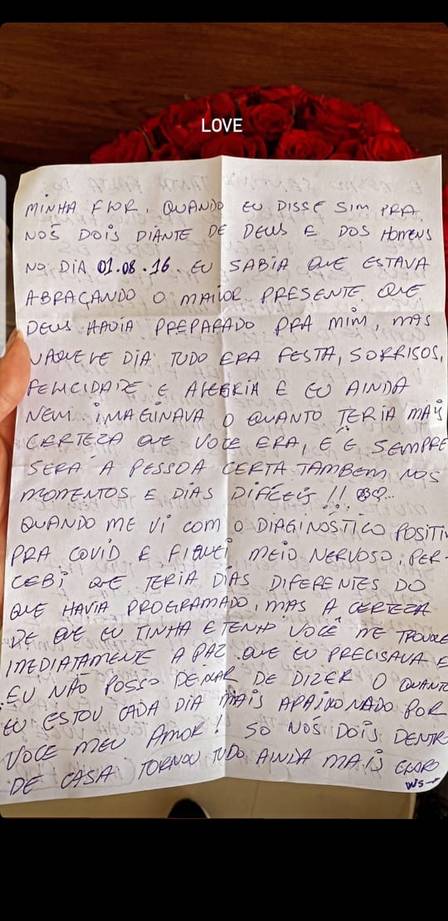 LOVE
MINHA FLOR, QUANDO EU DISSE SIM PRA
NÓS DOIS DIANTE DE DEUS E DOS HOMENS
NO DIA 01.08.16. EU SABIA QUE ESTAVA
ABRAÇANDO O MAIOR PRESENTE QUE
DEUS HAVIA PREPARADO PRA MIM, MAS
NAQUELE DIA TUDO ERA FESTA, SORRISOS,
FELICIDADE E ALEGRIA E EU AINDA
NEM IMAGINAVA O QUANTO TERIA MAIS
CERTEZA QUE VOCÊ ERA, E É SEMPRE
SERÁ A PESSOA CERTA TAMBEM NOS
MOMENTOS E DIAS DIFÍCEIS!!
QUANDO ME VI COM O DIAGINOSTICO POSITIV
PRA COVID E FIQUEI MEIO NERVOSO, PER-
CEBI QUE TERIA DIAS DIFERENTES DO
QUE HAVIA PROGRAMADO, MAS A CERTEZA
DE QUE EU TINHA E TENHO VOCÊ ME TROUXE
IMEDIATAMENTE A PAZ QUE EU PRECISAVA E
EU NÃO POSSO DEIXAR DE DIZER O QUANTO
EU ESTOU CADA DIA MAIS APAIXONADO POR
VOCE MEU AMOR! SO NÓS DOIS DENTR
DE CASA TORNOU TUDO AINDA MAIS CLARO